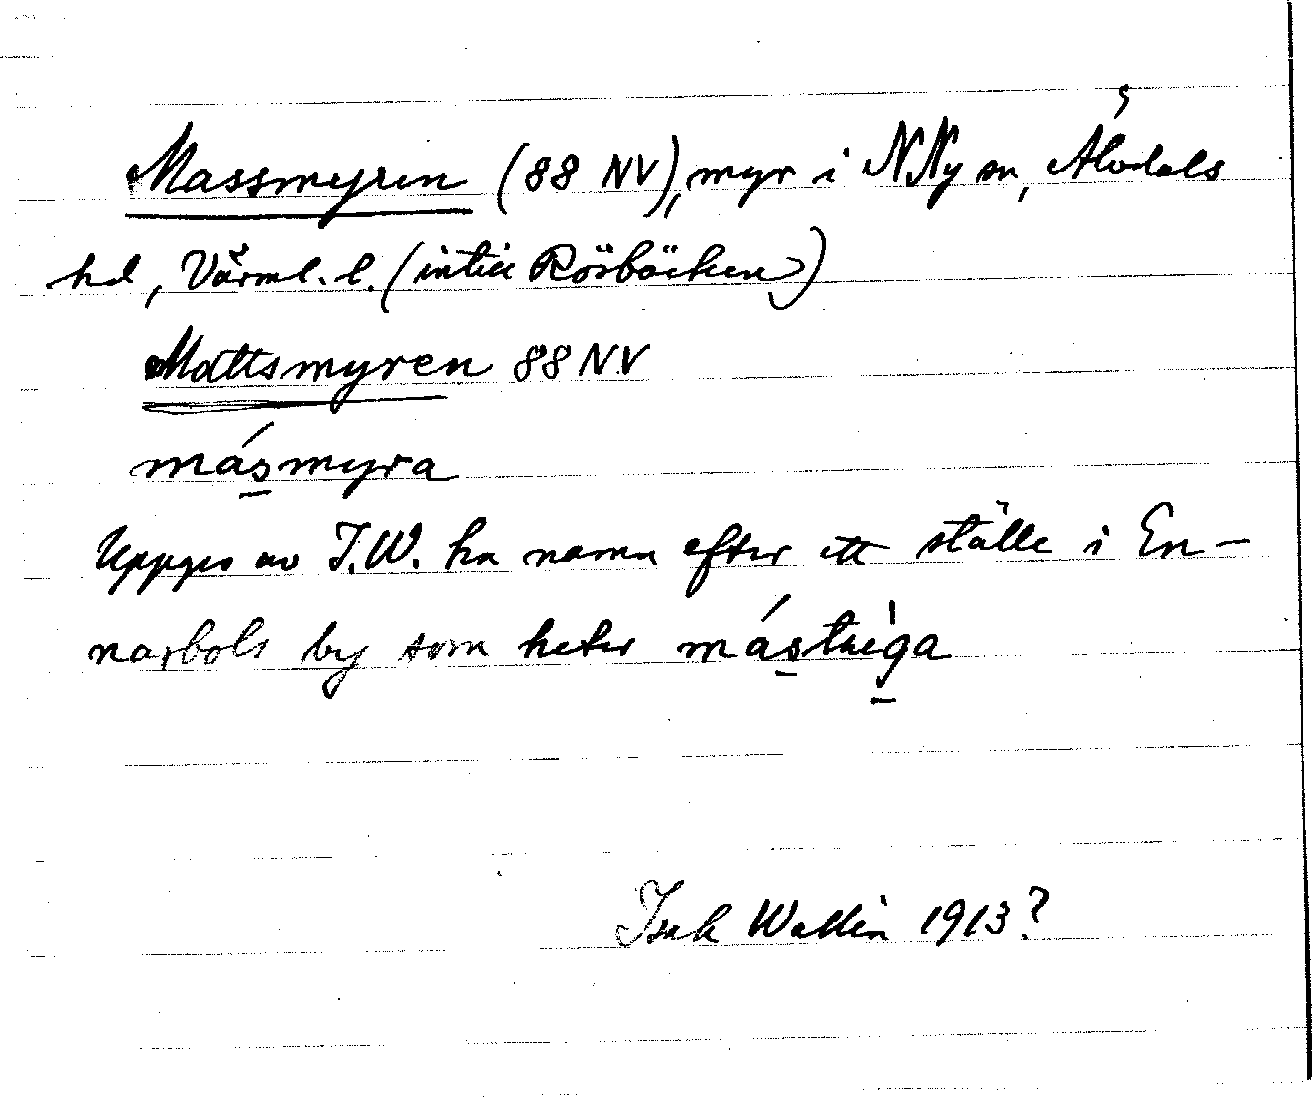 Massmyren (88 NV), myr i NNy sn, Älvdals
hd, Värml. l. (intill Rösbäcken)
Mattsmyren 88 NV
másmyra
Uppges av I.W. ha namn efter ett ställe i En-
narbols by som heter
Isak Wallin 1913?